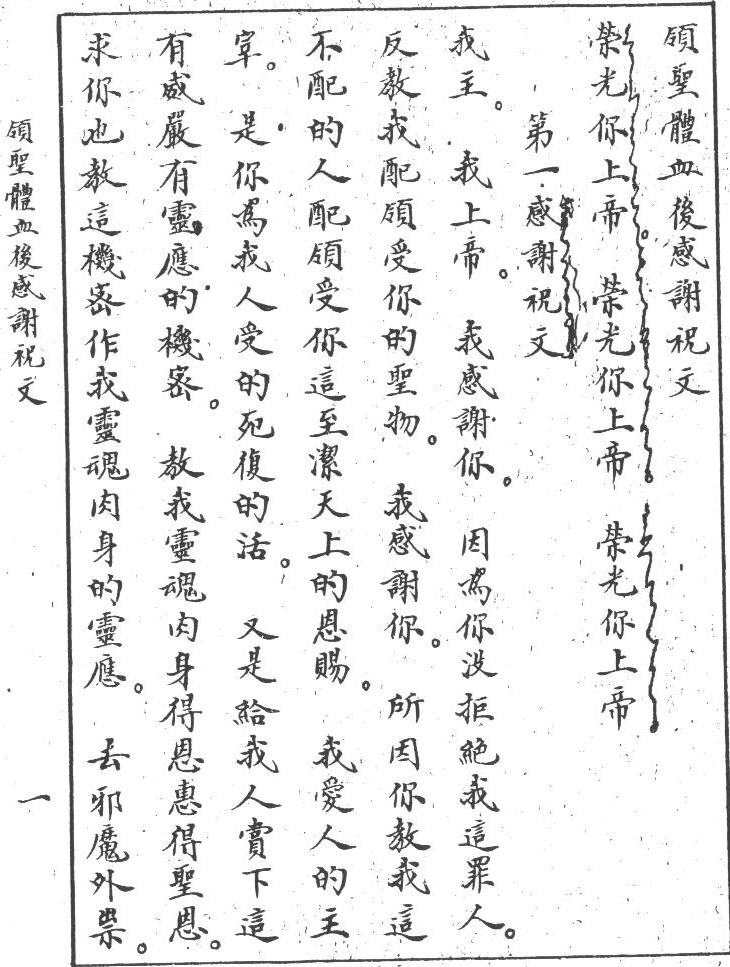 領聖體血後感謝祝文
榮光你上帝。榮光你上帝。榮光你上帝。
第一感謝祝文
我主。我上帝。我感謝你。因為你沒拒絕我這罪人。
反教我配領受你的聖物。我感謝你。所因你教我這
不配的人配領受你這至潔天上的恩賜。我愛人的主
宰。是你為我人受的死復的活。又是給我人賞下這
有威嚴有靈應的機密。教我靈魂肉身得恩惠得聖恩。
求你也教這機密作我靈魂肉身的靈應。去邪魔外祟。
領聖體血後感謝祝文
一